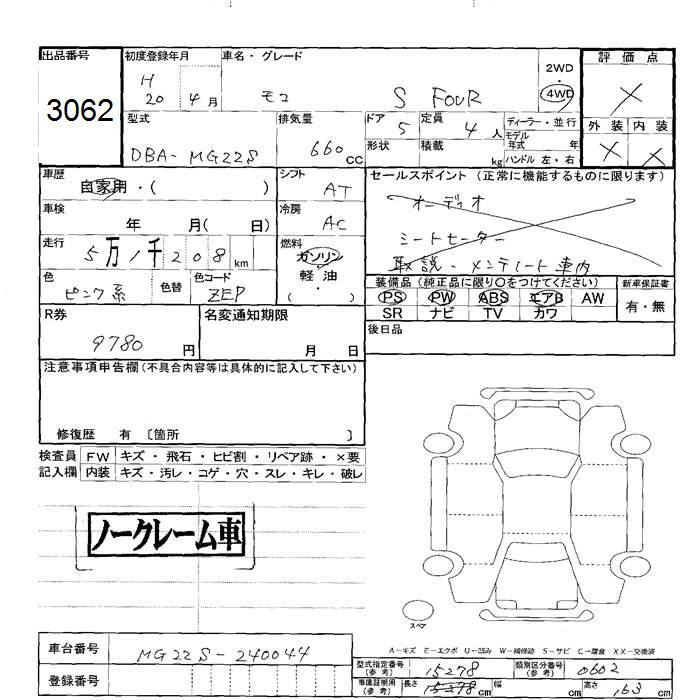 出品番号
3062
初度登録年月
H
20 4月
車名・グレード
モコ S FOUR
2WD
・
4WD
評価点
×
外装 内装
× ×
型式
DBA-MG22S
排気量
660CC
ドア
5
定員
4人
形状
積載
kg
ディーラー・並行
モデル年式 年
ハンドル 左・右
車歴
自家用・( )
シフト
AT
セールスポイント(正常に機能するものに限ります)
オーディオ
シートヒーター
取説・メンテノート車内
車検
年 月( 日)
冷房
AC
走行
5万1千208km
燃料
ガソリン
・
軽油
・
( )
色
ピンク系
色替
色コード
ZEP
装備品(純正品に限り○をつけてください)
PS PW ABS エアB AW
SR ナビ TV カワ
新車保証書
有・無
R券
9780円
名変通知期限
月 日
後日品
注意事項申告欄(不具合内容等は具体的に記入して下さい)
修復歴 有 〔箇所 〕
検査員記入欄
FW キズ・飛石・ヒビ割・リペア跡・×要
内装 キズ・汚レ・コゲ・穴・スレ・キレ・破レ
ノークレーム車
スペア
A-キズ E-エクボ U-凹み W-補修跡 S-サビ C-腐食 XX-交換済
車台番号
MG22S-240044
登録番号
型式指定番号(参考)
15278
類別区分番号(参考)
0602
車庫証明用(参考)
長さ
cm
幅
cm
高さ
163cm